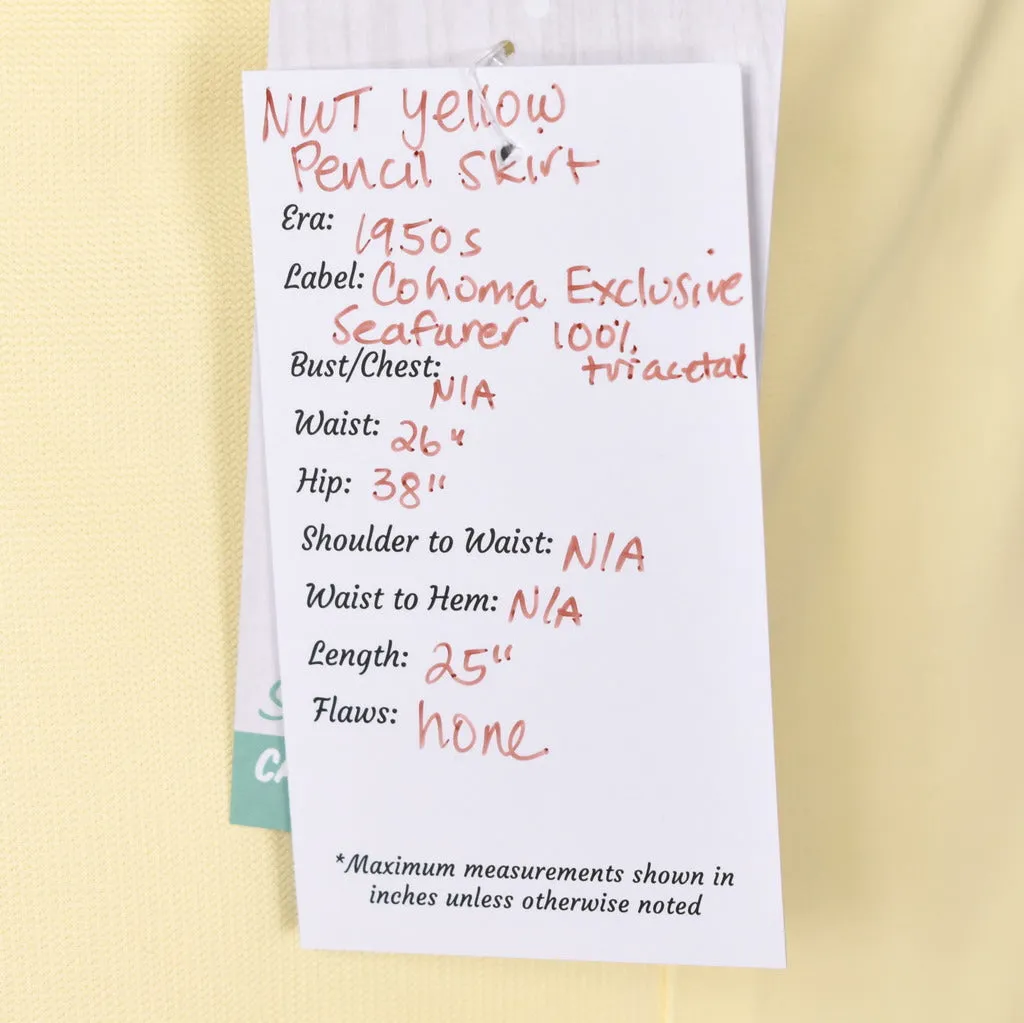 NWT yellow
Pencil skirt
Era: 1950s
Label: Cohoma Exclusive
Seafarer 100%
triacetat
Bust/Chest: N/A
Waist: 26"
Hip: 38"
Shoulder to Waist: N/A
Waist to Hem: N/A
Length: 25"
Flaws: none
*Maximum measurements shown in
inches unless otherwise noted